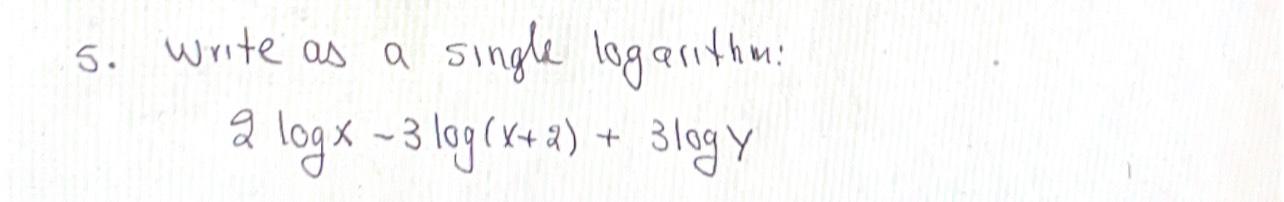 5. Write as a single logarithm:
2 logx - 3 log(x+2) + 3logy